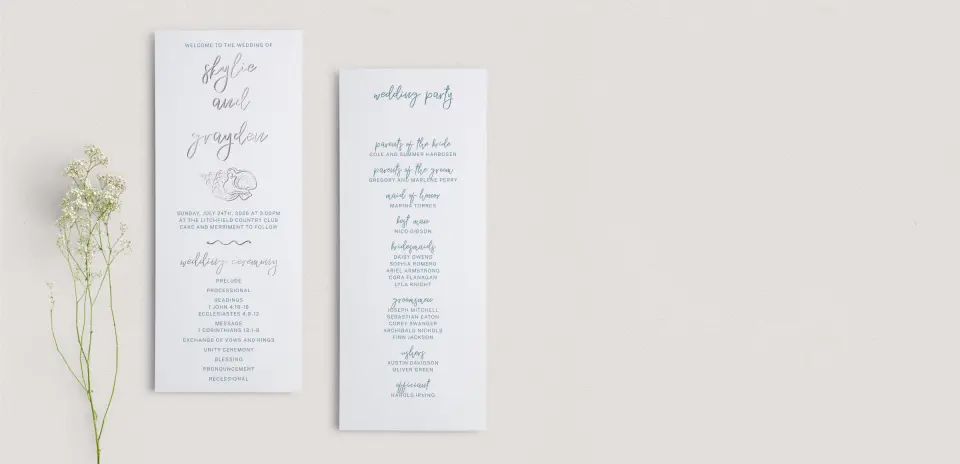 WELCOME TO THE WEDDING OF
skylie
and
grayden
SUNDAY, JULY 24TH, 2026 AT 5:00PM
AT THE LITCHFIELD COUNTRY CLUB
CAKE AND MERRIMENT TO FOLLOW
wedding ceremony
PRELUDE
PROCESSIONAL
READINGS
1 JOHN 4:16-19
ECCLESIASTES 4:9-12
MESSAGE
1 CORINTHIANS 13:1-8
EXCHANGE OF VOWS AND RINGS
UNITY CEREMONY
BLESSING
PRONOUNCEMENT
RECESSIONAL
wedding party
parents of the bride
COLE AND SUMMER HARBOSEN
parents of the groom
GREGORY AND MARLENE PERRY
maid of honor
MARINA TORRES
best man
NICO GIBSON
bridesmaids
DAISY OWENS
SOPHIA ROMERO
ARIEL ARMSTRONG
EZRA FLANAGAN
LYLA KNIGHT
groomsmen
JOSEPH MITCHELL
SEBASTIAN EATON
COREY SWANGER
ARCHIBALD NICHOLS
FINN JACKSON
ushers
AUSTIN DAVIDSON
OLIVER GREEN
officiant
HAROLD IRVING